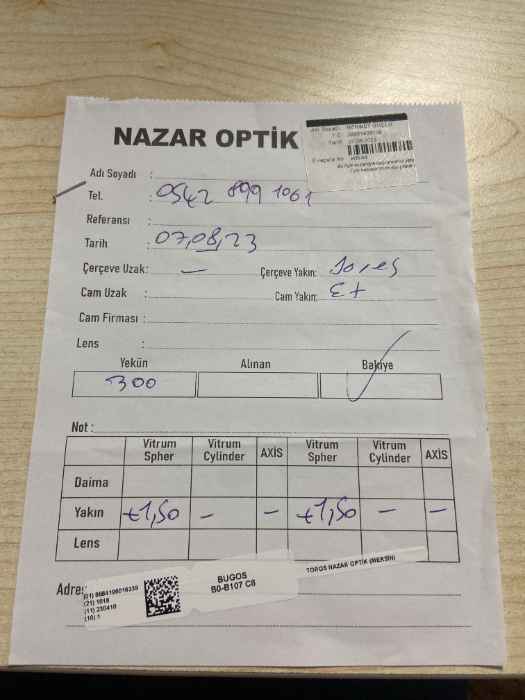 NAZAR OPTİK
Adı Soyadı: MEHMET GÜÇLÜ
T.C.
Tarih 07.08.2023
E-reçete No
Adı Soyadı :
Tel. : 0542 899 1061
Referansı :
Tarih : 07,08,23
Çerçeve Uzak: — Çerçeve Yakın:
Cam Uzak : Cam Yakın:
Cam Firması :
Lens :
Yekün Alınan Bakiye
300
Not :
Vitrum Spher Vitrum Cylinder AXİS Vitrum Spher Vitrum Cylinder AXİS
Daima
Yakın +1,50 — — +1,50 — —
Lens
TOROS NAZAR OPTİK (MERSİN)
Adres
(01) 8684106016339
(21) 1018
(11) 230410
(10) 1
BUGOS
B0-B107 C8